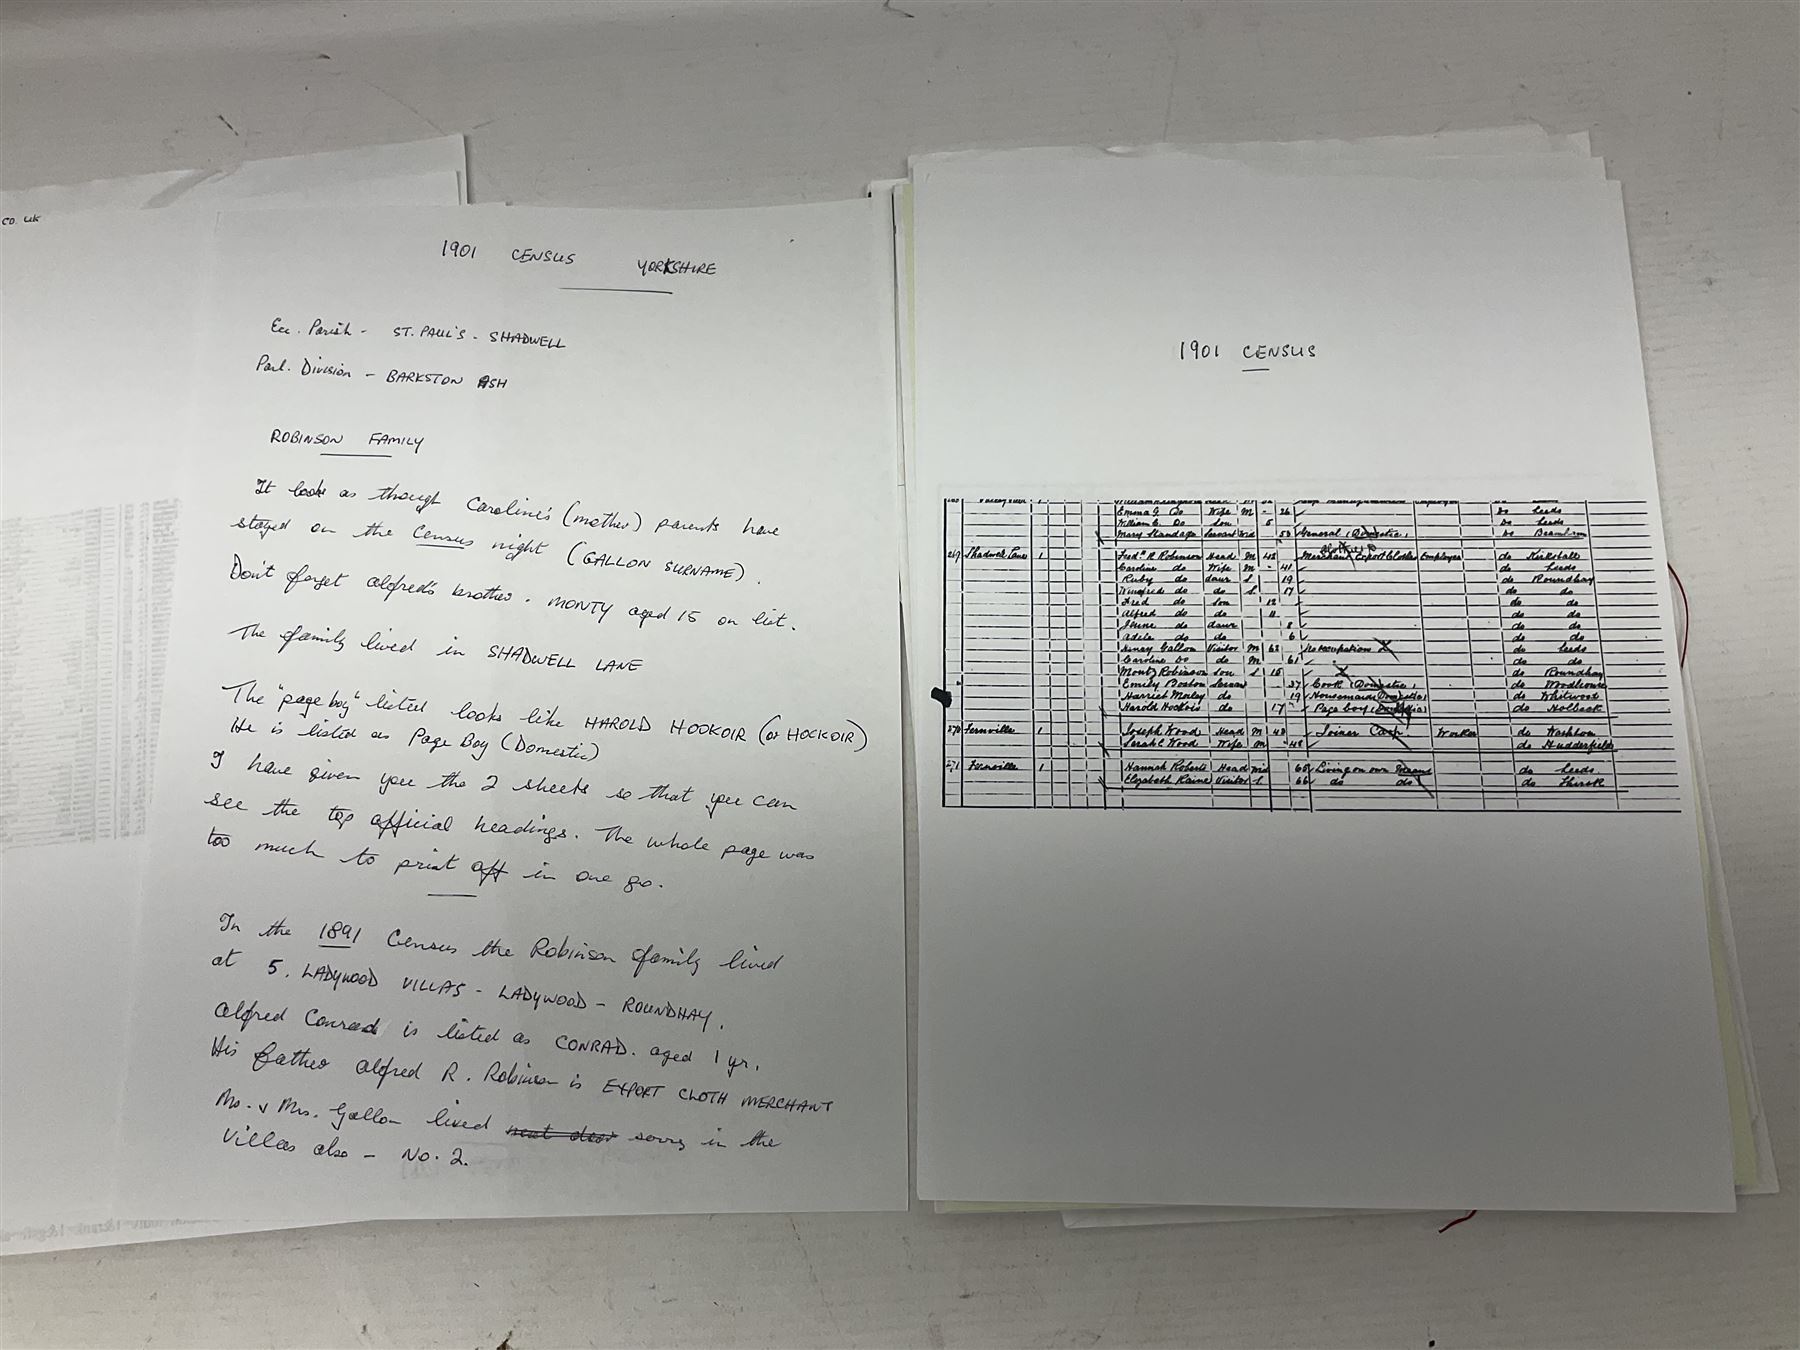 co. uk
1901 CENSUS YORKSHIRE
Ecc. Parish - ST. PAUL'S - SHADWELL
Parl. Division - BARKSTON ASH
ROBINSON FAMILY
It looks as though Caroline's (mother) parents have
stayed on the Census night (GALLON SURNAME).
Don't forget Alfred's brother. MONTY aged 15 on list.
The family lived in SHADWELL LANE
The "page boy" listed looks like HAROLD HOOKOIR (or HOCKOIR)
He is listed as Page Boy (Domestic)
I have given you the 2 sheets so that you can
see the top official headings. The whole page was
too much to print off in one go.
In the 1891 Census the Robinson family lived
at 5. LADYWOOD VILLAS - LADYWOOD - ROUNDHAY.
Alfred Conrad is listed as CONRAD. aged 1 yr.
His father Alfred R. Robinson is EXPORT CLOTH MERCHANT
Mr. & Mrs. Gallon lived next door sorry in the
Villas also - No. 2.
1901 CENSUS
Emma G. Do Wife M - 26 Do Leeds
William E. Do Son 5 Do Leeds
Mary Servant Wid 50 General (Domestic) Do
269 Shadwell Lane 1 Fredk R Robinson Head M 43 Merchant Export Clothes Employer do Kirkstall
Caroline do Wife M - 41 do Leeds
Ruby do daur S 19 do Roundhay
Winifred do do S 17 do do
Fred do son 12 do do
Alfred do do 11 do do
do daur 8 do do
Adele do do 6 do do
Henry Gallon Visitor M 63 No occupation do Leeds
Caroline Do do M 61 do do
Monty Robinson Son S 15 do Roundhay
Emily Boston Servant 37 Cook (Domestic) do Woodhouse
Harriet Morley do 19 Housemaid (Domestic) do Whitwood
Harold do 17 Page boy (Domestic) do Holbeck
270 Fernville 1 Joseph Wood Head M 48 Joiner Worker do
Sarah E Wood Wife M 48 do Huddersfield
271 Fernville 1 Hannah Roberts Head Wid 65 Living on own Means do Leeds
Elizabeth Raine Visitor S 66 do do do Thirsk